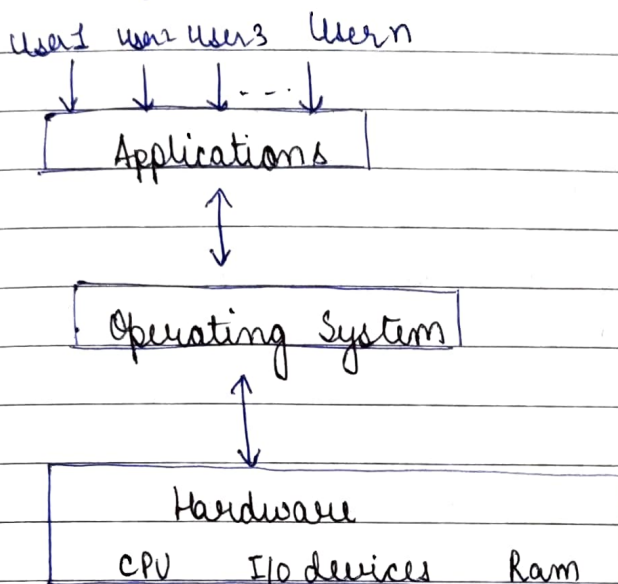 User1 user2 user3 User n
Applications
Operating System
Hardware
CPU I/O devices Ram